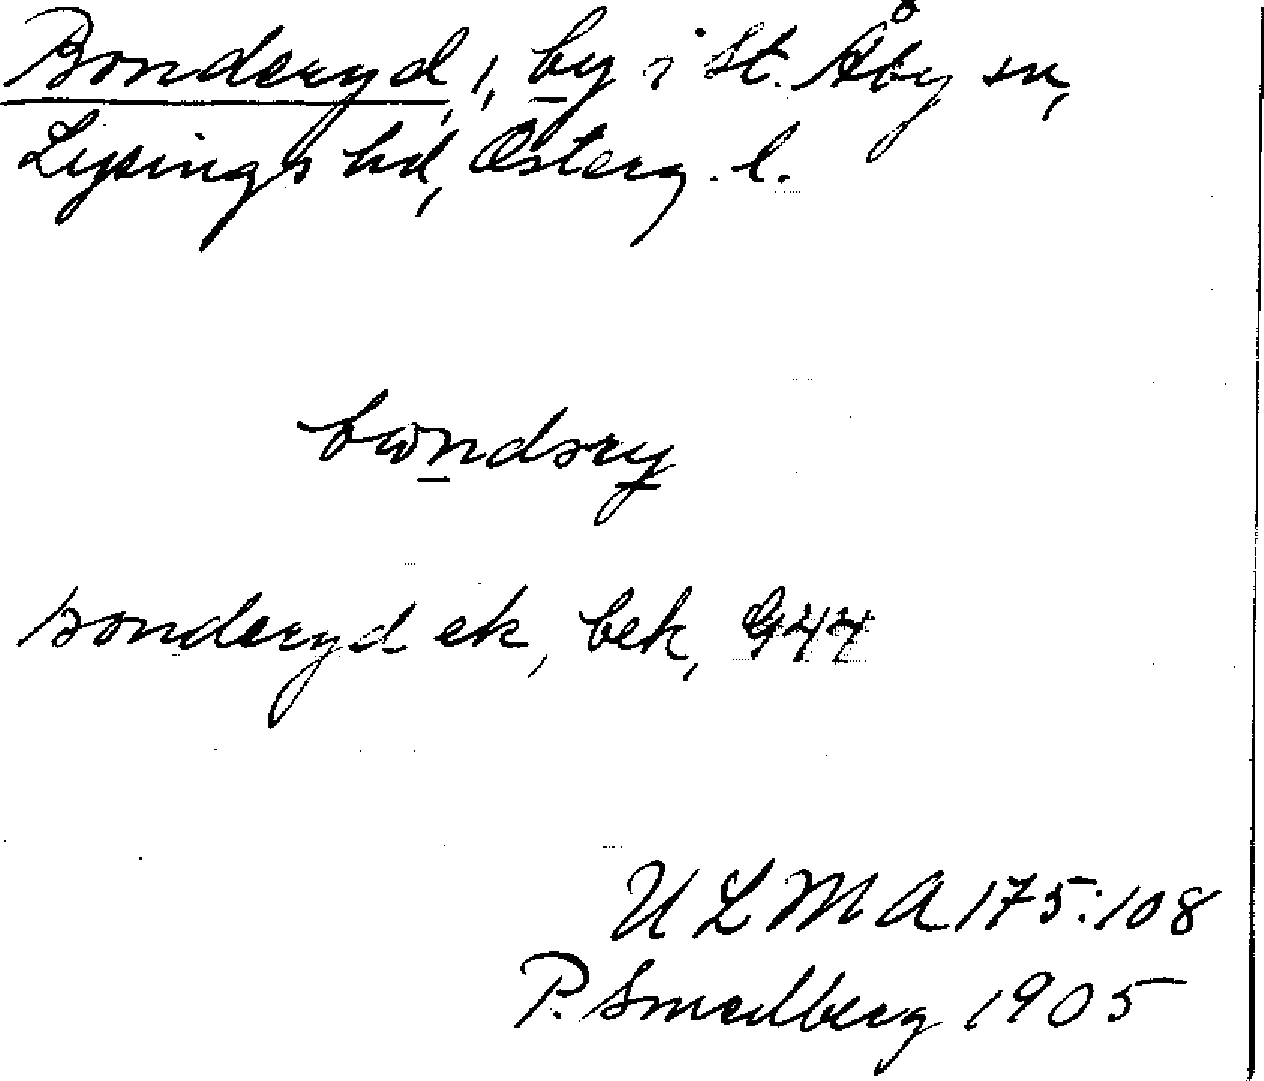 Bonderyd, 1, by i St. Åby sn,
Lysings hd, Österg. l.
Bonderyd ek, bek, G44
ULMA 175:108
P. Smedberg 1905